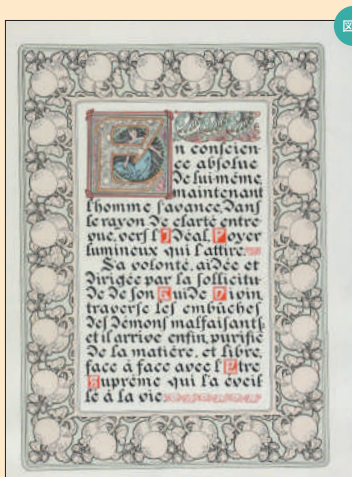 図
En conscien-
ce absolue
De lui-même,
maintenant
l'homme s'avance, Dans
le rayon De clarté entre
vue, vers l'Idéal, Foyer
lumineux qui l'attire.
Sa volonté, aidée et
Dirigée par la sollicitu
De De son Guide Divin,
traverse les embûches
Des Démons malfaisants,
et il arrive enfin, purifié
De la matière, et libre,
face à face avec l'Etre
Suprême qui l'a éveil
lé à la vie